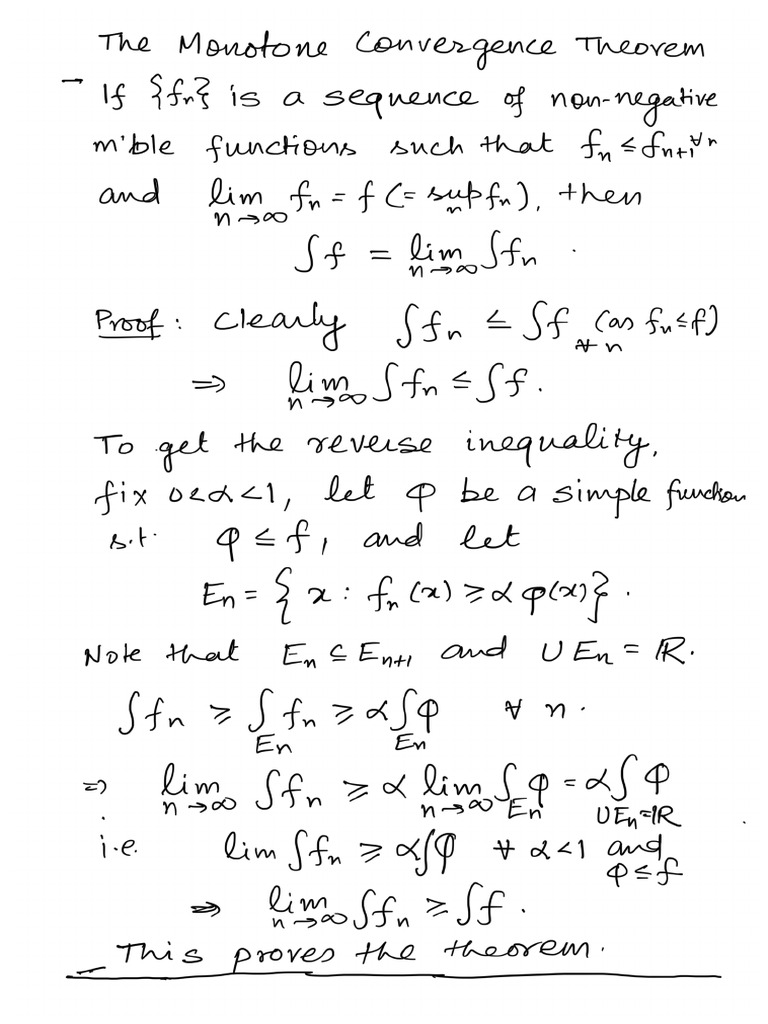 The Monotone Convergence Theorem
– If {fn} is a sequence of non-negative
m'ble functions such that fn ≤ fn+1 ∀ n
and lim n→∞ fn = f (= sup n fn), then
∫f = lim n→∞ ∫fn .
Proof : Clearly ∫fn ≤ ∫f ∀ n (as fn ≤ f)
⇒ lim n→∞ ∫fn ≤ ∫f .
To get the reverse inequality,
fix 0<α<1, let φ be a simple function
s.t. φ ≤ f, and let
En = { x : fn(x) ≥ α φ(x) } .
Note that En ⊆ En+1 and ∪En = ℝ.
∫fn ≥ ∫En fn ≥ α∫En φ ∀ n .
⇒ lim n→∞ ∫fn ≥ α lim n→∞ ∫En φ = α∫∪En=ℝ φ
i.e. lim ∫fn ≥ α∫φ ∀ α<1 and φ ≤ f
⇒ lim n→∞ ∫fn ≥ ∫f .
This proves the theorem.